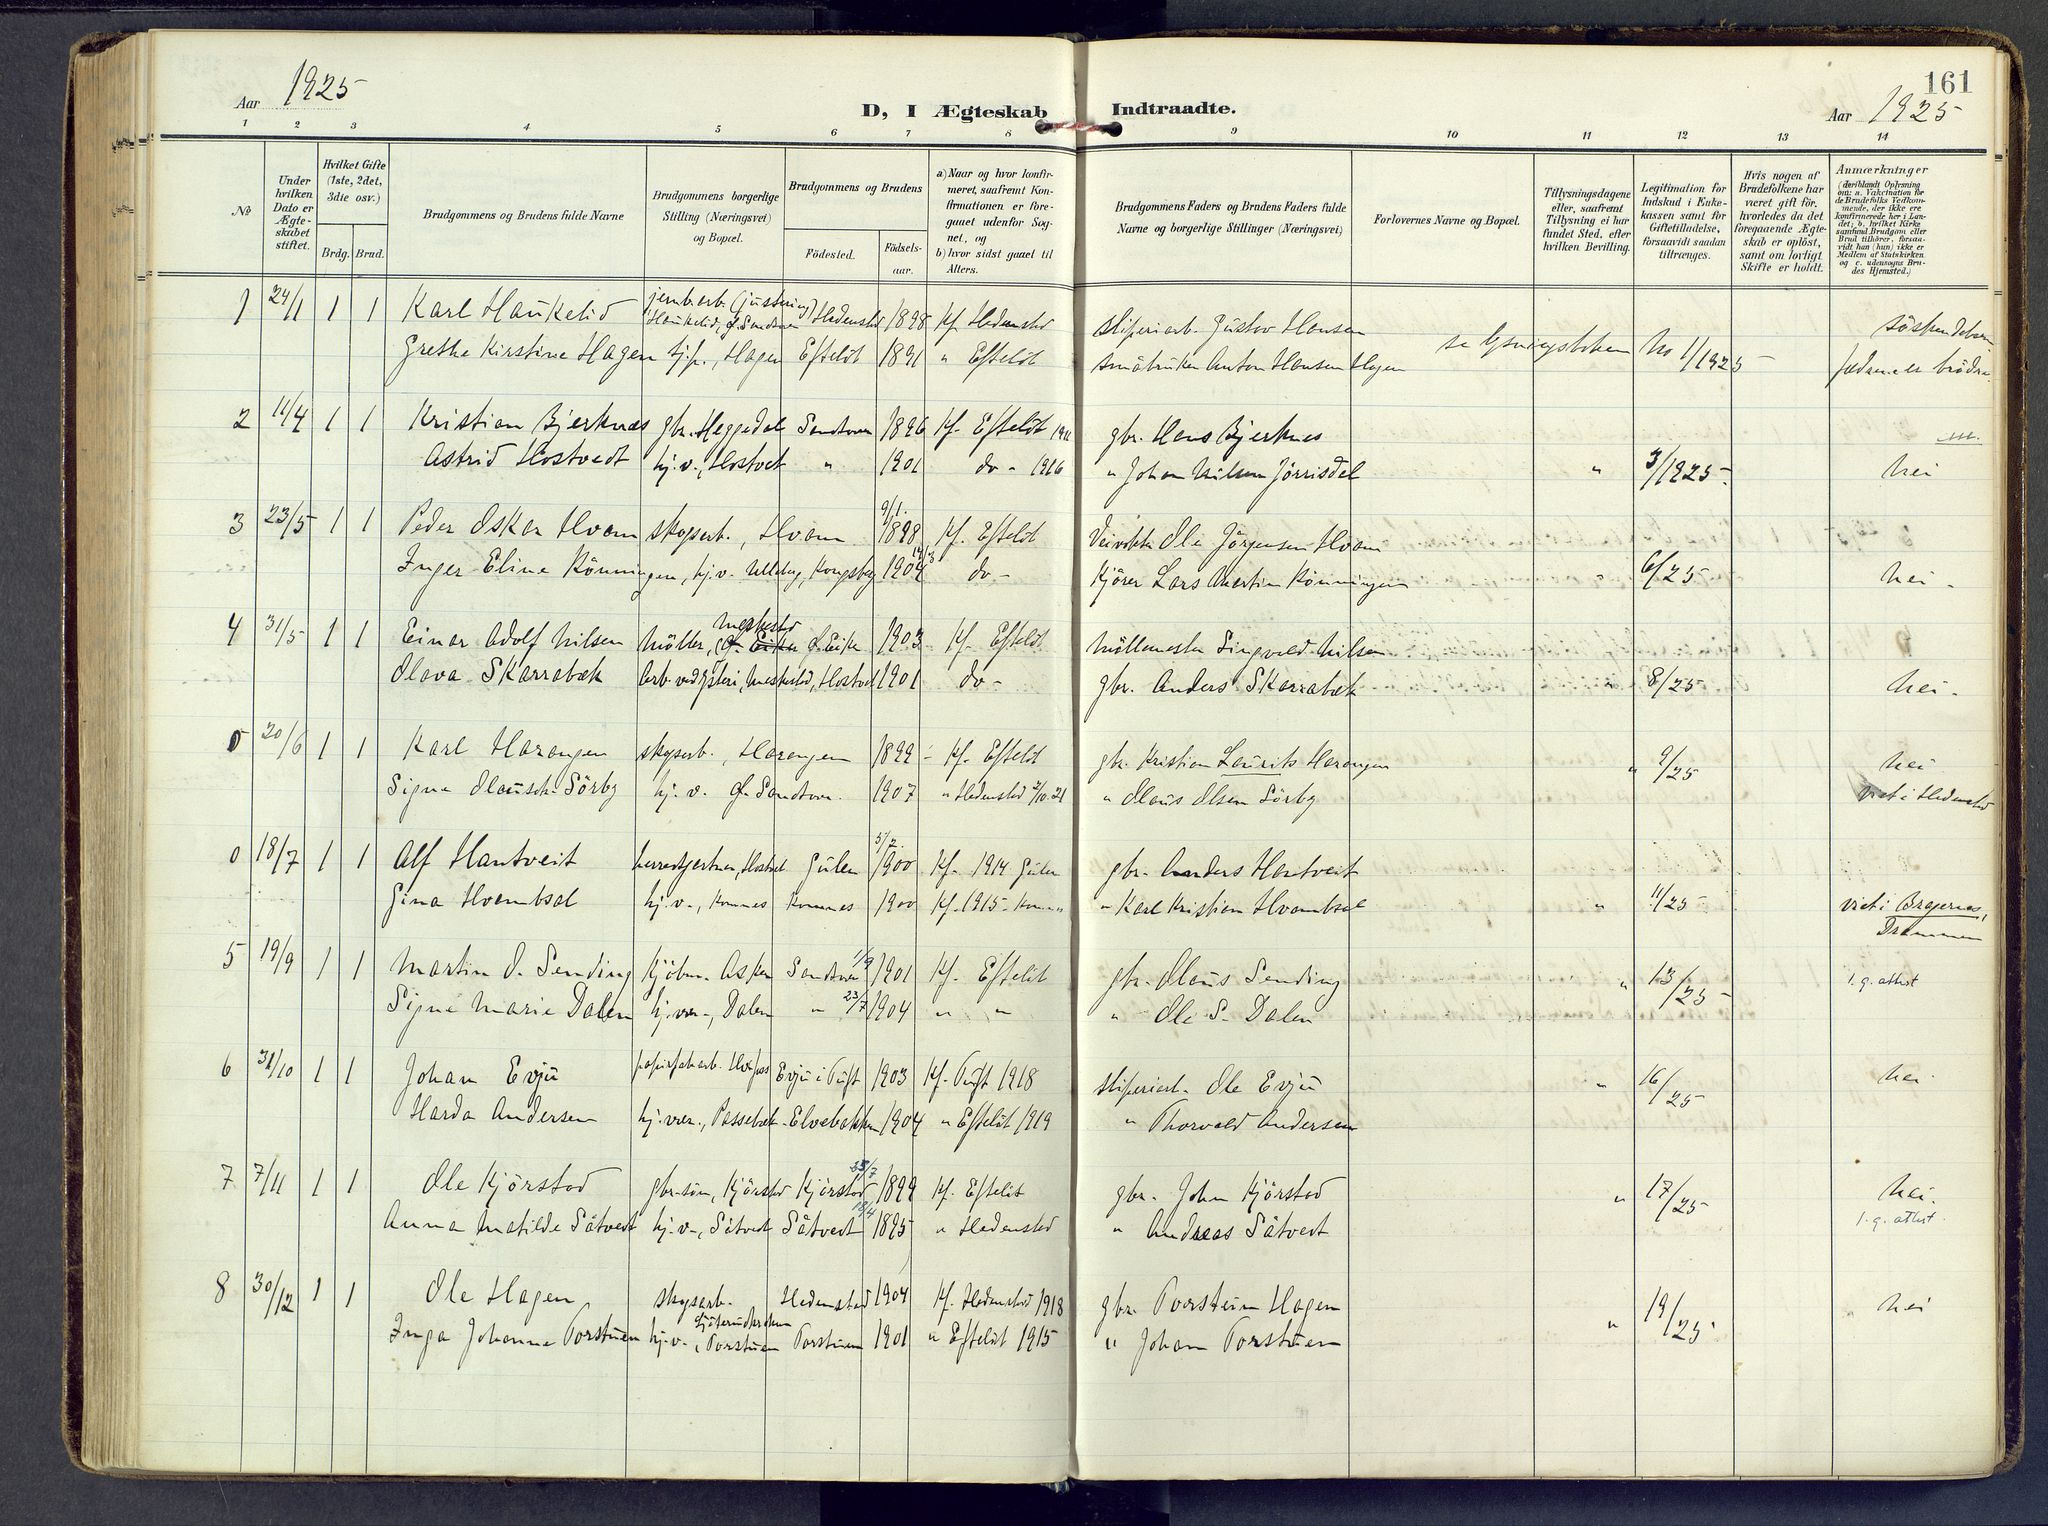 161
Aar 1925
D, I Ægteskab Indtraadte.
Aar 1925
1 2 3 4 5 6 7 8 9 10 11 12 13 14
№
Under hvilken Dato er Ægteskabet stiftet.
Hvilket Gifte (1ste, 2det, 3die osv.)
Brdg. Brud.
Brudgommens og Brudens fulde Navne
Brudgommens borgerlige Stilling (Næringsvei) og Bopæl.
Brudgommens og Brudens
Födested.
Födsels-aar.
a) Naar og hvor konfirmeret, saafremt Konfirmationen er foregaaet udenfor Sognet, og
b) hvor sidst gaaet til Alters.
Brudgommens Faders og Brudens Faders fulde Navne og borgerlige Stillinger (Næringsvei)
Forlovernes Navne og Bopæl.
Tillysningsdagene eller, saafremt Tillysning ei har fundet Sted, efter hvilken Bevilling.
Legitimation for Indskud i Enkekassen samt for Giftetilladelse, forsaavidt saadan tiltrænges.
Hvis nogen af Brudefolkene har været gift før, hvorledes da det foregaaende Ægteskab er oplöst, samt om lovligt Skifte er holdt.
Anmærkninger
(deriblandt Oplysning om: a. Vakcination for de Brudefolks Vedkommende, der ikke ere konfirmerede her i Landet; b. hvilket Kirkesamfund Brudgom eller Brud tilhörer, forsaavidt han (hun) ikke er Medlem af Statskirken og c. udensogns Brudes Hjemsted.)
1 24/1 1 1 Karl Haukelid jernb.arb. (justering) Haukelid, Sandsvær Hedenstad 1898 Kf. Hedenstad sliperiarb. Gustav Hansen se lysningsboken No 1/1925 söskendebarn
Grethe Kirstine Hagen tjp., Hagen Efteløt 1891 " Efteløt småbruker Anton Hansen Hagen fædrene er brødre
2 11/4 1 1 Kristian Bjerknæs gbr. Heggedal Sandsvær 1896 Kf. Efteløt 1911 gbr. Hans Bjerknes
Astrid Hostvedt hj.v., Hostvet " 1901 do - 1916 " Johan Nilsen Jørrisdal " 3/1925 nei
3 23/5 1 1 Peder Oskar Hvam skogsarb., Hvam 9/1 1898 Kf. Efteløt Veivokter Ole Jørgensen Hvam
Inger Eline Rønningen, hj.v. Ulleberg, Kongsberg 1904 do - Kjører Lars Martin Rønningen " 6/25 nei -
4 31/5 1 1 Einar Adolf Nilsen Møller, Meskestad Eike 1903 Kf. Efteløt Møllemester Sigvald Nilsen
Olava Skarrabæk Arb. ved Ysteri, Meskestad, Hostvet 1901 do - gbr. Anders Skarrabæk " 8/25 nei -
5 20/6 1 1 Karl Harangen skogsarb., Harangen 1899 - Kf. Efteløt gbr. Kristian Laurits Harangen " 9/25 nei
Signe Olausd. Sørby hj.v. Sandsvær. 1907 " Hedenstad 2/10.21 " Olaus Olsen Sørby viet i Hedenstad
0 18/7 1 1 Alf Hantveit herredgartner, Hostvet Gulen 5/7 1900 Kf. 1914 Gulen gbr. Anders Hantveit
Gina Hvambsal hj.v., Komnes Komnes 1900 Kf. 1915 - Komn. " Karl Kristian Hvambsal " 11/25 viet i Bragernes, Drammen
5 19/9 1 1 Martin O. Sending kjøbm. Asker Sandsvær 1/9 1901 Kf. Efteløt gbr. Olaus Sending " 13/25 1. g. attest
Signe Marie Dalen hj.vær., Dalen " 23/7 1904 " " " Ole S. Dalen
6 31/10 1 1 Johan Evju papirfabarb. Evju i Tuft 1903 Kf. Tuft 1918 sliperiarb. Ole Evju " 16/25 nei
Harda Andersen hj.vær., Passebæk Elvebakken 1904 " Efteløt 1919 " Thorvald Andersen
7 7/11 1 1 Ole Kjørstad gbr.søn, Kjørstad Kjørstad 1899 Kf. Efteløt gbr. John Kjørstad " 17/25 nei.
Anna Matilde Såtvedt hj.v., Såtvedt Såtvedt 18/4 1895 " Hedenstad " Andreas Såtvedt 1. g. attest.
8 30/12 1 1 Ole Hagen skogsarb. Hedenstad 1904 Kf. Hedenstad 1918 gbr. Torstein Hagen " 19/25 nei
Inga Johanne Torstuen hj.v., Torstuen Torstuen 1901 " Efteløt 1915 " Johan Torstuen